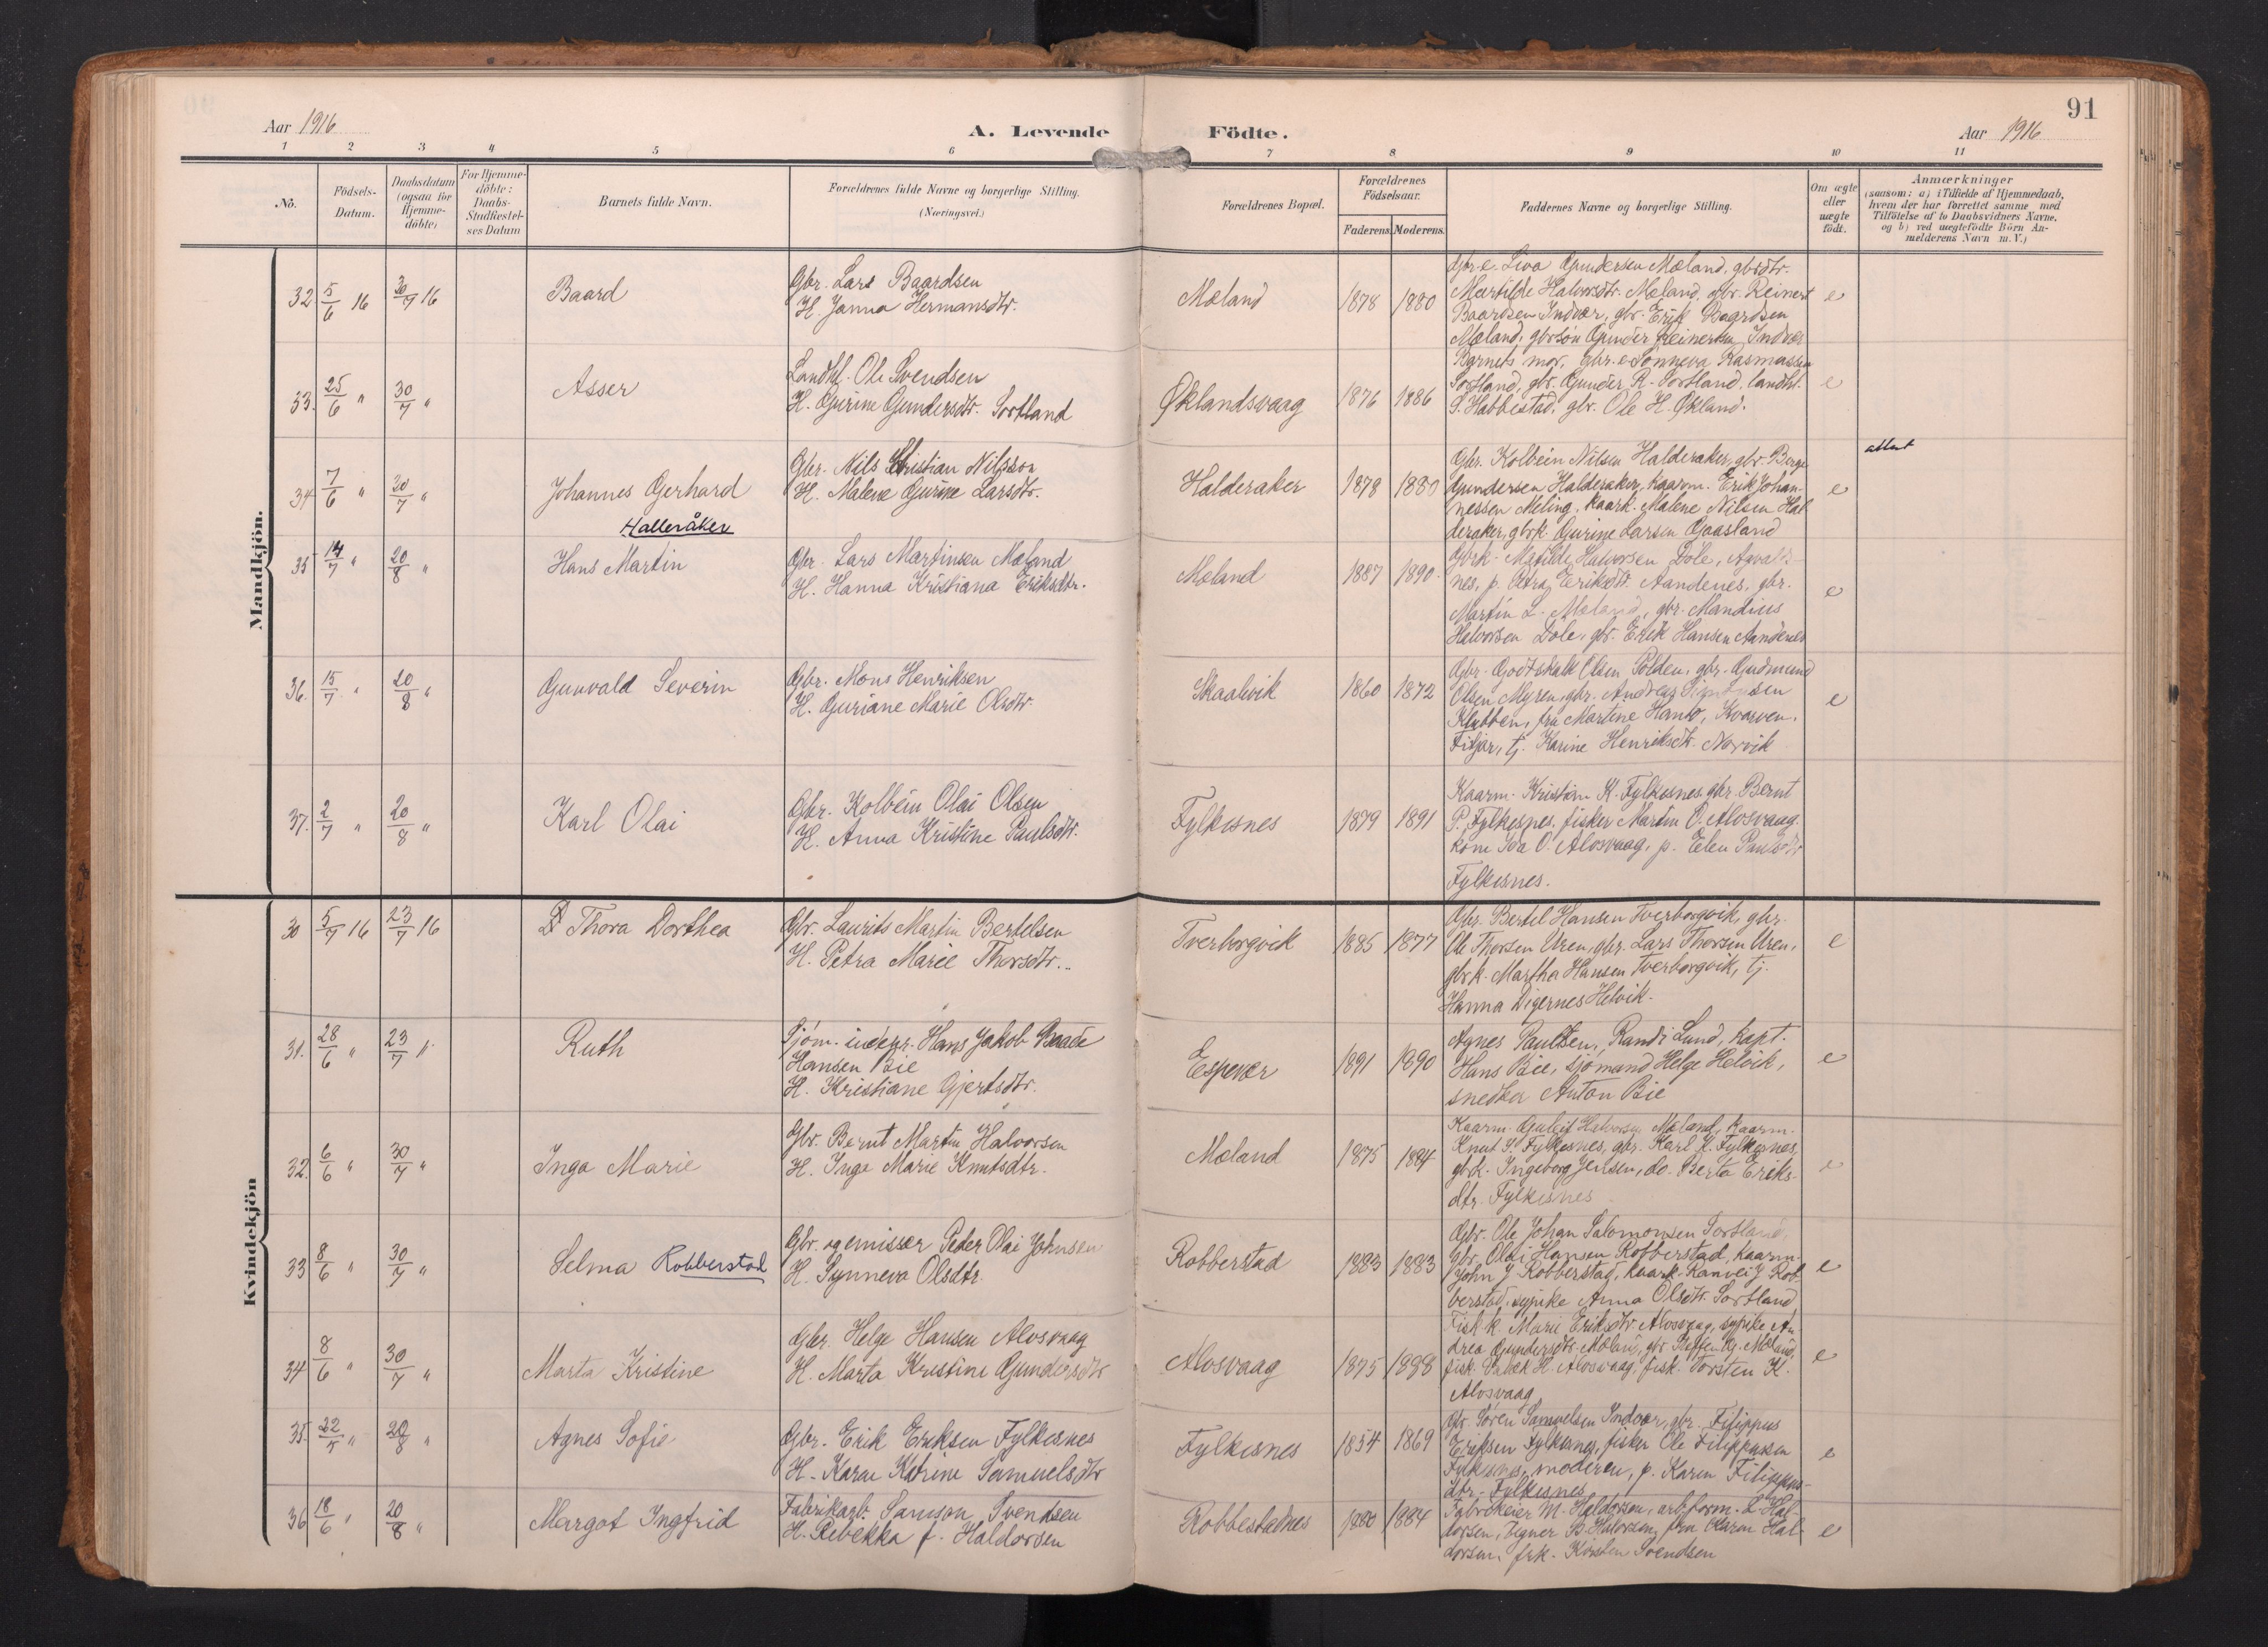 91
Aar 1916
A. Levende
Födte.
Aar 1916
1 2 3 4 5 6 7 8 9 10 11
No.
Födsels-
Datum.
Daabsdatum
(ogsaa for
Hjemme-
döbte)
For Hjemme-
döbte:
Daabs-
Stadfæstel-
ses Datum
Barnets fulde Navn.
Forældrenes fulde Navne og borgerlige Stilling.
(Næringsvei.)
Forældrenes Bopæl.
Forældrenes
Födselsaar.
Faderens. Moderens.
Faddernes Navne og borgerlige Stilling.
Om ægte
eller
uægte
födt.
Anmærkninger
(saasom: a) i Tilfælde af Hjemmedaab,
hvem der har forrettet samme med
Tilföielse af to Daabsvidners Navne,
og b) ved uægtefödte Börn An-
melderens Navn m. V.)
Mandkjön.
32 5/6 16 30/7 16
Baard
Gbr. Lars Baardsen
H. Janna Hermansdtr.
Mæland
1878 1880
Gbr.e. Liva Gundersen Mæland, gbrdtr.
Martilde Halvorsdtr. Mæland, gbr. Reinert
Baardsen Indvær, gbr. Erik Baardsen
Mæland, gbrsøn Gunder Reinertsen Indvær
e
33. 25/6 " 30/7 "
Asser
Landhl. Ole Svendsen
H. Gurine Gundersdtr. Sortland
Øklandsvaag
1876 1886
Barnets mor, gbr.e Sønneva Rasmussen
Sortland, gbr. Gunder R. Sortland, landhl.
S. Habbestad, gbr. Ole H. Økland.
e
34 7/6 " 20/7 "
Johannes Gerhard
Halleråker
Gbr. Nils Kristian Nilsson
H. Malene Gurine Larsdtr.
Halderaker
1878 1880
Gbr. Kolbein Nilsen Halderaker, gbr. Børge
Gundersen Halderaker, kaarm. Erik Johan-
nessen Meling, kaark. Malene Nilsen Hal
deraker, gbrk Gurine Larsen Gaasland
e
attest
35 14/7 " 20/8 "
Hans Martin
Gbr. Lars Martinsen Mæland
H. Hanna Kristiana Eriksdtr.
Mæland
1887 1890
Gbrk. Matilde Halvorsen Dole, Agvald-
nes, p. Petra Eriksdtr. Aandenes, gbr.
Martin L. Mæland, gbr. Mandius
Halvorsen Dole, gbr. Erik Hansen Aandenes
e
36. 15/7 " 20/8 "
Gunvald Severin
Gbr. Mons Henriksen
H. Guriane Marie Olsdtr.
Skaalevik
1860 1872
Gbr. Godtskalk Olsen Polden, gbr. Gudmund
Olsen Myren, gbr. Andreas
Klubben, fru Martine Hanto, Kvarven,
Fitjar, tj. Karine Henriksdtr. Norvik
e
37. 2/7 " 20/8 "
Karl Olai
Gbr. Kolbein Olai Olsen
H. Anna Kristine Paulsdtr.
Fylkesnes
1879 1891
Kaarm. Kristian K. Fylkesnes, gbr. Bernt
P. Fylkesnes, fisker Martin O. Alvsvaag
kone Ida O. Alvsvaag, p. Elen Paulsdtr
Fylkesnes.
Kvindekjön
30 5/7 16 23/7 16
Thora Dorthea
Gbr. Laurits Martin Bertelsen
H. Petra Marie Thorsdtr.
Tverborgvik
1885 1877
Gbr. Bertel Hansen Tverborgvik, gbr.
Ole Thorsen Uren, gbr. Lars Thorsen Uren,
gbrk. Martha Hansen Tverborgvik, tj.
Hanna Digernes Helvik.
e
31. 28/6 " 23/7 "
Ruth
Sjøm. Hans Jakob Baade
Hansen Bie
H. Kristiane Gjertsdtr.
Espevær
1891 1890
Agnes Paulsen, Randi Lund, kapt.
Hans Bie, sjømand Helge Helvik,
snedker Anton Bie
e
32. 6/6 " 30/7 "
Inga Marie
Gbr. Bernt Martin Halvorsen
H. Inga Marie Knutsdtr.
Mæland
1875 1884
Kaarm. Guleif Halvorsen Mæland, kaarm.
Knut S. Fylkesnes, gbr. Karl K. Fylkesnes,
gbrk. Ingeborg Jensen, do. Berta Eriks-
dtr. Fylkesnes
e
33 8/6 " 30/7 "
Selma Robberstad
Gbr. og emissær Peder Olai Johnsen
H. Synneva Olsdtr.
Robberstad
1883 1883
Gbr. Ole Johan Salomonsen Sortland,
Gbr. Olai Hansen Robberstad, kaarm.
John J Robberstad, kaark. Ranvei J Rob-
berstad, sypike Anna Olsdtr. Sortland
e
34 8/6 " 30/7 "
Marta Kristine
Gbr. Helge Hansen Alvsvaag
H. Marta Kristine Gundersdtr
Alvsvaag
1875 1888
Fisk.k. Marie Eriksdtr Alvsvaag, sypike An
drea Gundersdtr. Mæland, gbr. Steffen G. Mæland,
fisk. H. Alvsvaag, fisk. Torsten K.
Alvsvaag
e
35. 22/5 " 20/8 "
Agnes Sofie
Gbr. Erik Eriksen Fylkesnes
H. Karen Katrine Samuelsdtr
Fylkesnes
1854 1869
Gbr. Søren Samuelsen Indvær, gbr. Filippus
Eriksen Fylkesnes, fisker Ole Filippussen
Fylkesnes, moderen, p. Karen Filippus-
dtr. Fylkesnes
e
36 18/6 " 20/8 "
Margot Ingfrid
Fabrikarb. Samson Svendsen
H. Rebekka f. Haldorsen
Robbestadnes
1880 1884
Fabrikeier M. Haldorsen, arb.form. L. Hal-
dorsen, Tegner B. Haldorsen, fru Karen Hal-
dorsen, frk. Kirsten Svendsen
e